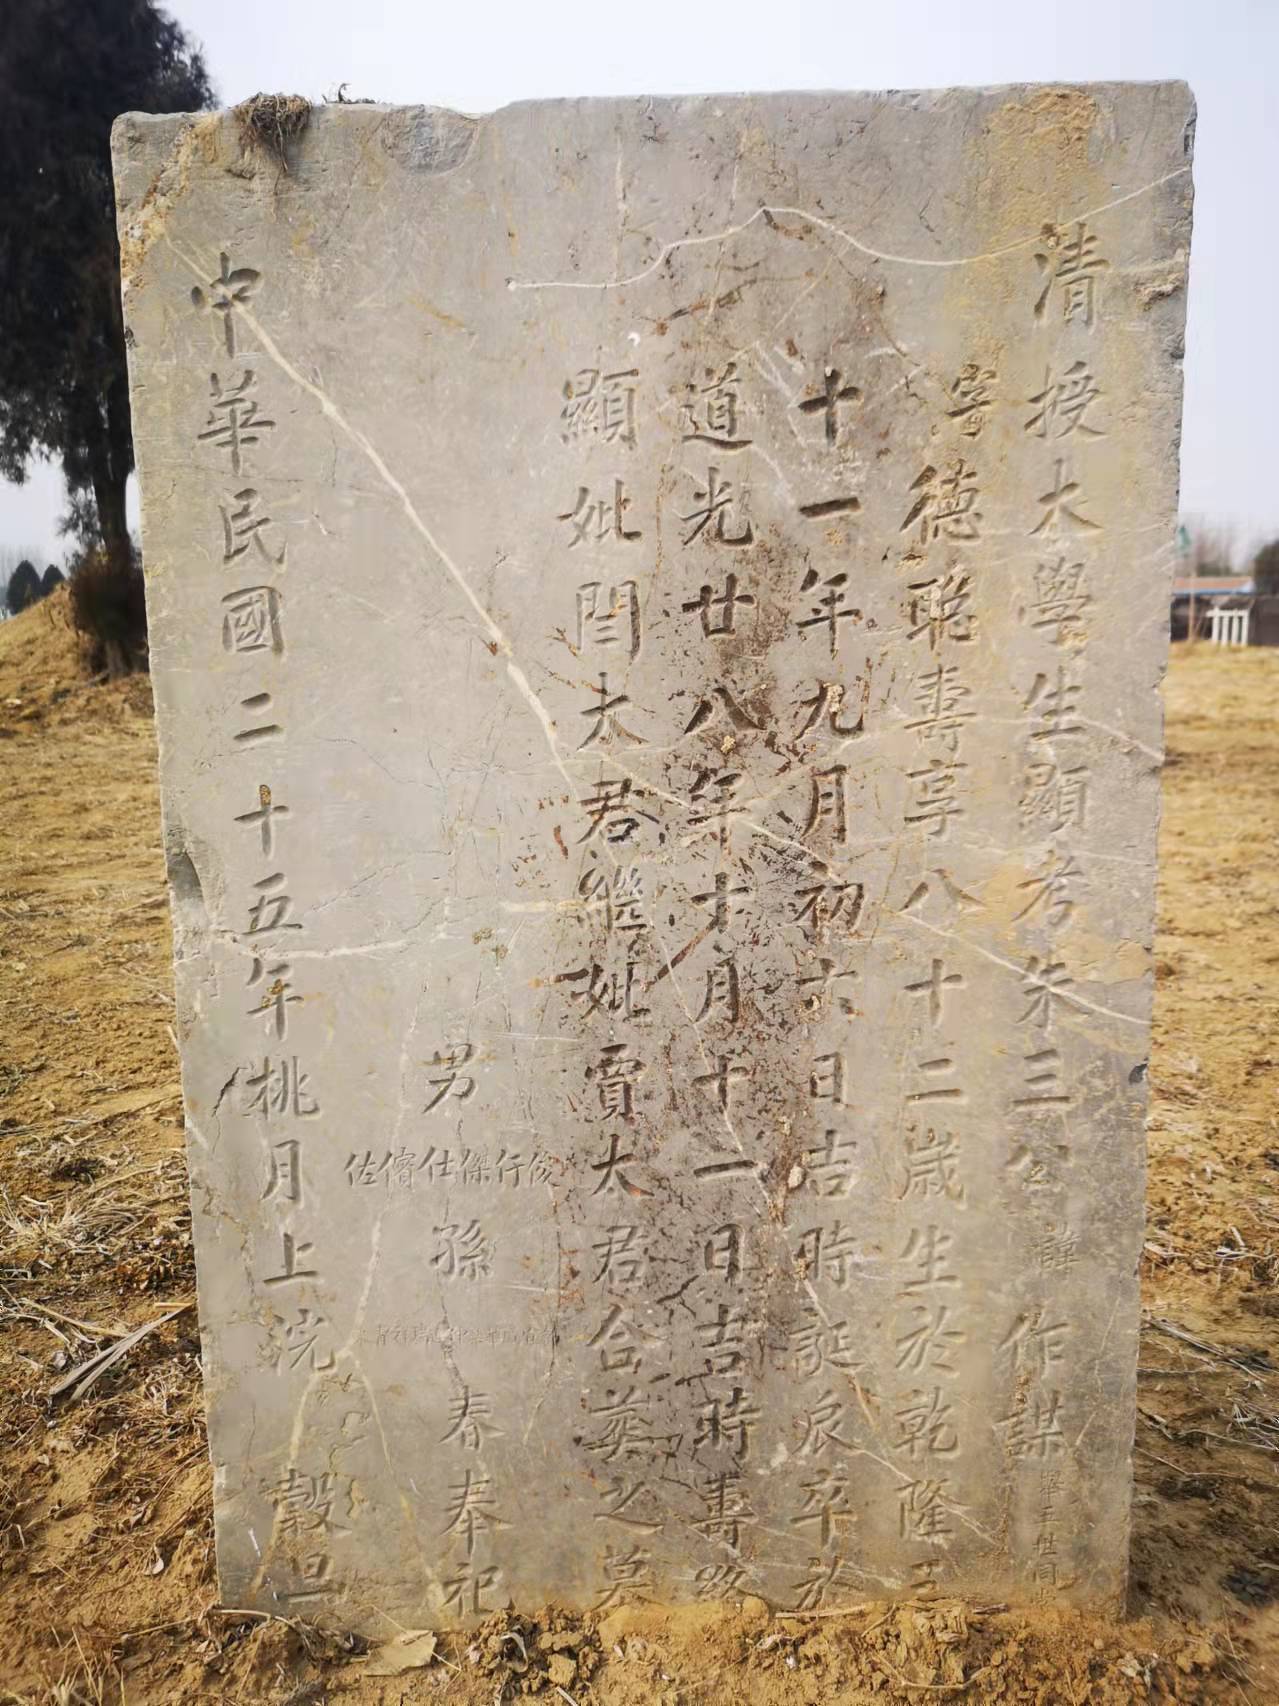 清授太學生顯考朱三公諱作謀舉五世同
字德聰壽享八十二歲生於乾隆三
十一年九月初六日吉時誕辰卒於
道光廿八年十月十一日吉時壽路
顯妣閆太君繼妣賈太君合葬之墓
男
佐儕仕傑行俊
孫
春奉祀
中華民國二十五年桃月上浣 穀旦